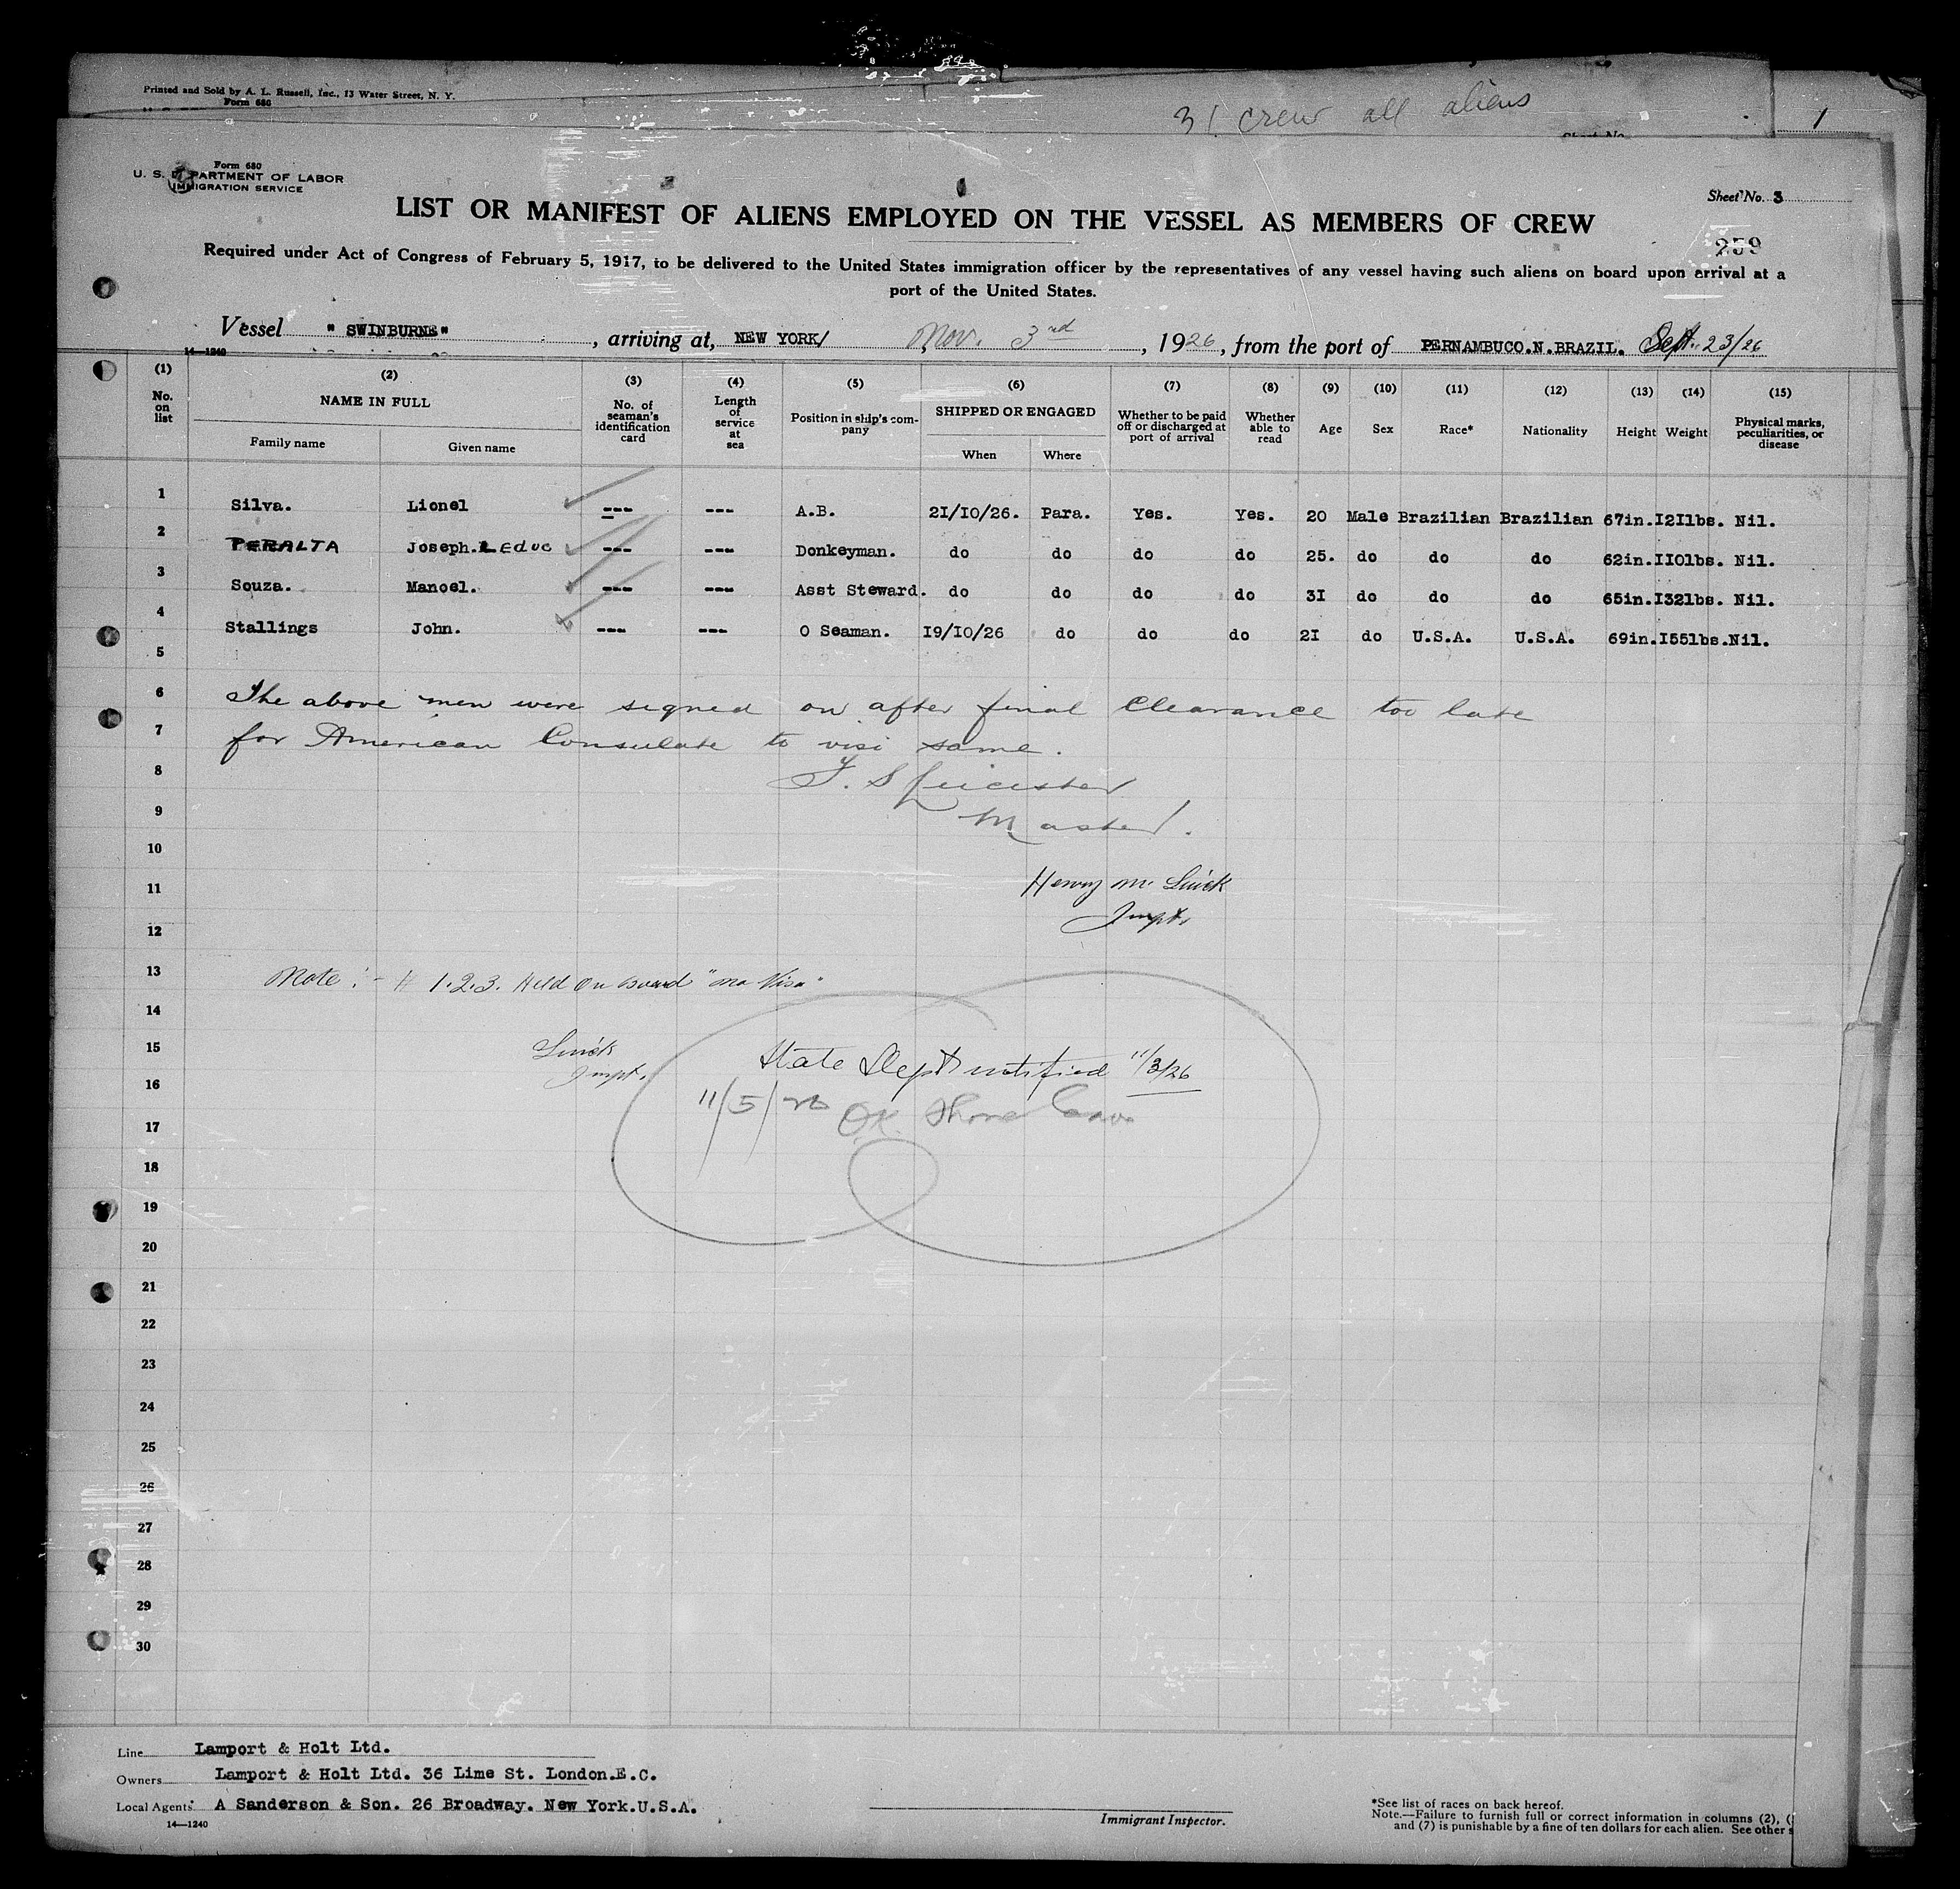 Printed and Sold by A. L. Russell, Inc., 13 Water Street, N. Y.
Form 680
31 crew all aliens
1
Form 680
U. S. DEPARTMENT OF LABOR
IMMIGRATION SERVICE
Sheet No. 3
LIST OR MANIFEST OF ALIENS EMPLOYED ON THE VESSEL AS MEMBERS OF CREW
259
Required under Act of Congress of February 5, 1917, to be delivered to the United States immigration officer by the representatives of any vessel having such aliens on board upon arrival at a
port of the United States.
Vessel " SWINBURNE" , arriving at, NEW YORK/ Nov. 3rd , 1926, from the port of PERNAMBUCO.N.BRAZIL. Sept. 23/26
14—1240
(1) (2) (3) (4) (5) (6) (7) (8) (9) (10) (11) (12) (13) (14) (15)
No. on list NAME IN FULL No. of seaman's identification card Length of service at sea Position in ship's company SHIPPED OR ENGAGED Whether to be paid off or discharged at port of arrival Whether able to read Age Sex Race* Nationality Height Weight Physical marks, peculiarities, or disease
Family name Given name When Where
1 Silva. Lionel --- --- A.B. 2I/IO/26. Para. Yes. Yes. 20 Male Brazilian Brazilian 67in. I2Ilbs. Nil.
2 PERALTA Joseph. Leduc --- --- Donkeyman. do do do do 25. do do do 62in. IIOlbs. Nil.
3 Souza. Manoel. --- --- Asst Steward. do do do do 3I do do do 65in. I32lbs. Nil.
4 Stallings John. --- --- O Seaman. I9/IO/26 do do do 2I do U.S.A. U.S.A. 69in. I55lbs. Nil.
5
6 The above men were signed on after final Clearance too late
7 for American Consulate to visi same.
8
9 Master.
10
11 Henry M.
12 Inspt.
13 Note :- # 1.2.3. Held on board "no Visa"
14
15 State Dept notified 11/3/26
16 Inspt.
11/5/26 OK Shore leave
17
18
19
20
21
22
23
24
25
26
27
28
29
30
Line Lamport & Holt Ltd.
Owners Lamport & Holt Ltd. 36 Lime St. London.E.C.
Local Agents: A Sanderson & Son. 26 Broadway. New York.U.S.A.
14—1240
Immigrant Inspector.
*See list of races on back hereof.
Note.—Failure to furnish full or correct information in columns (2), (
and (7) is punishable by a fine of ten dollars for each alien. See other s